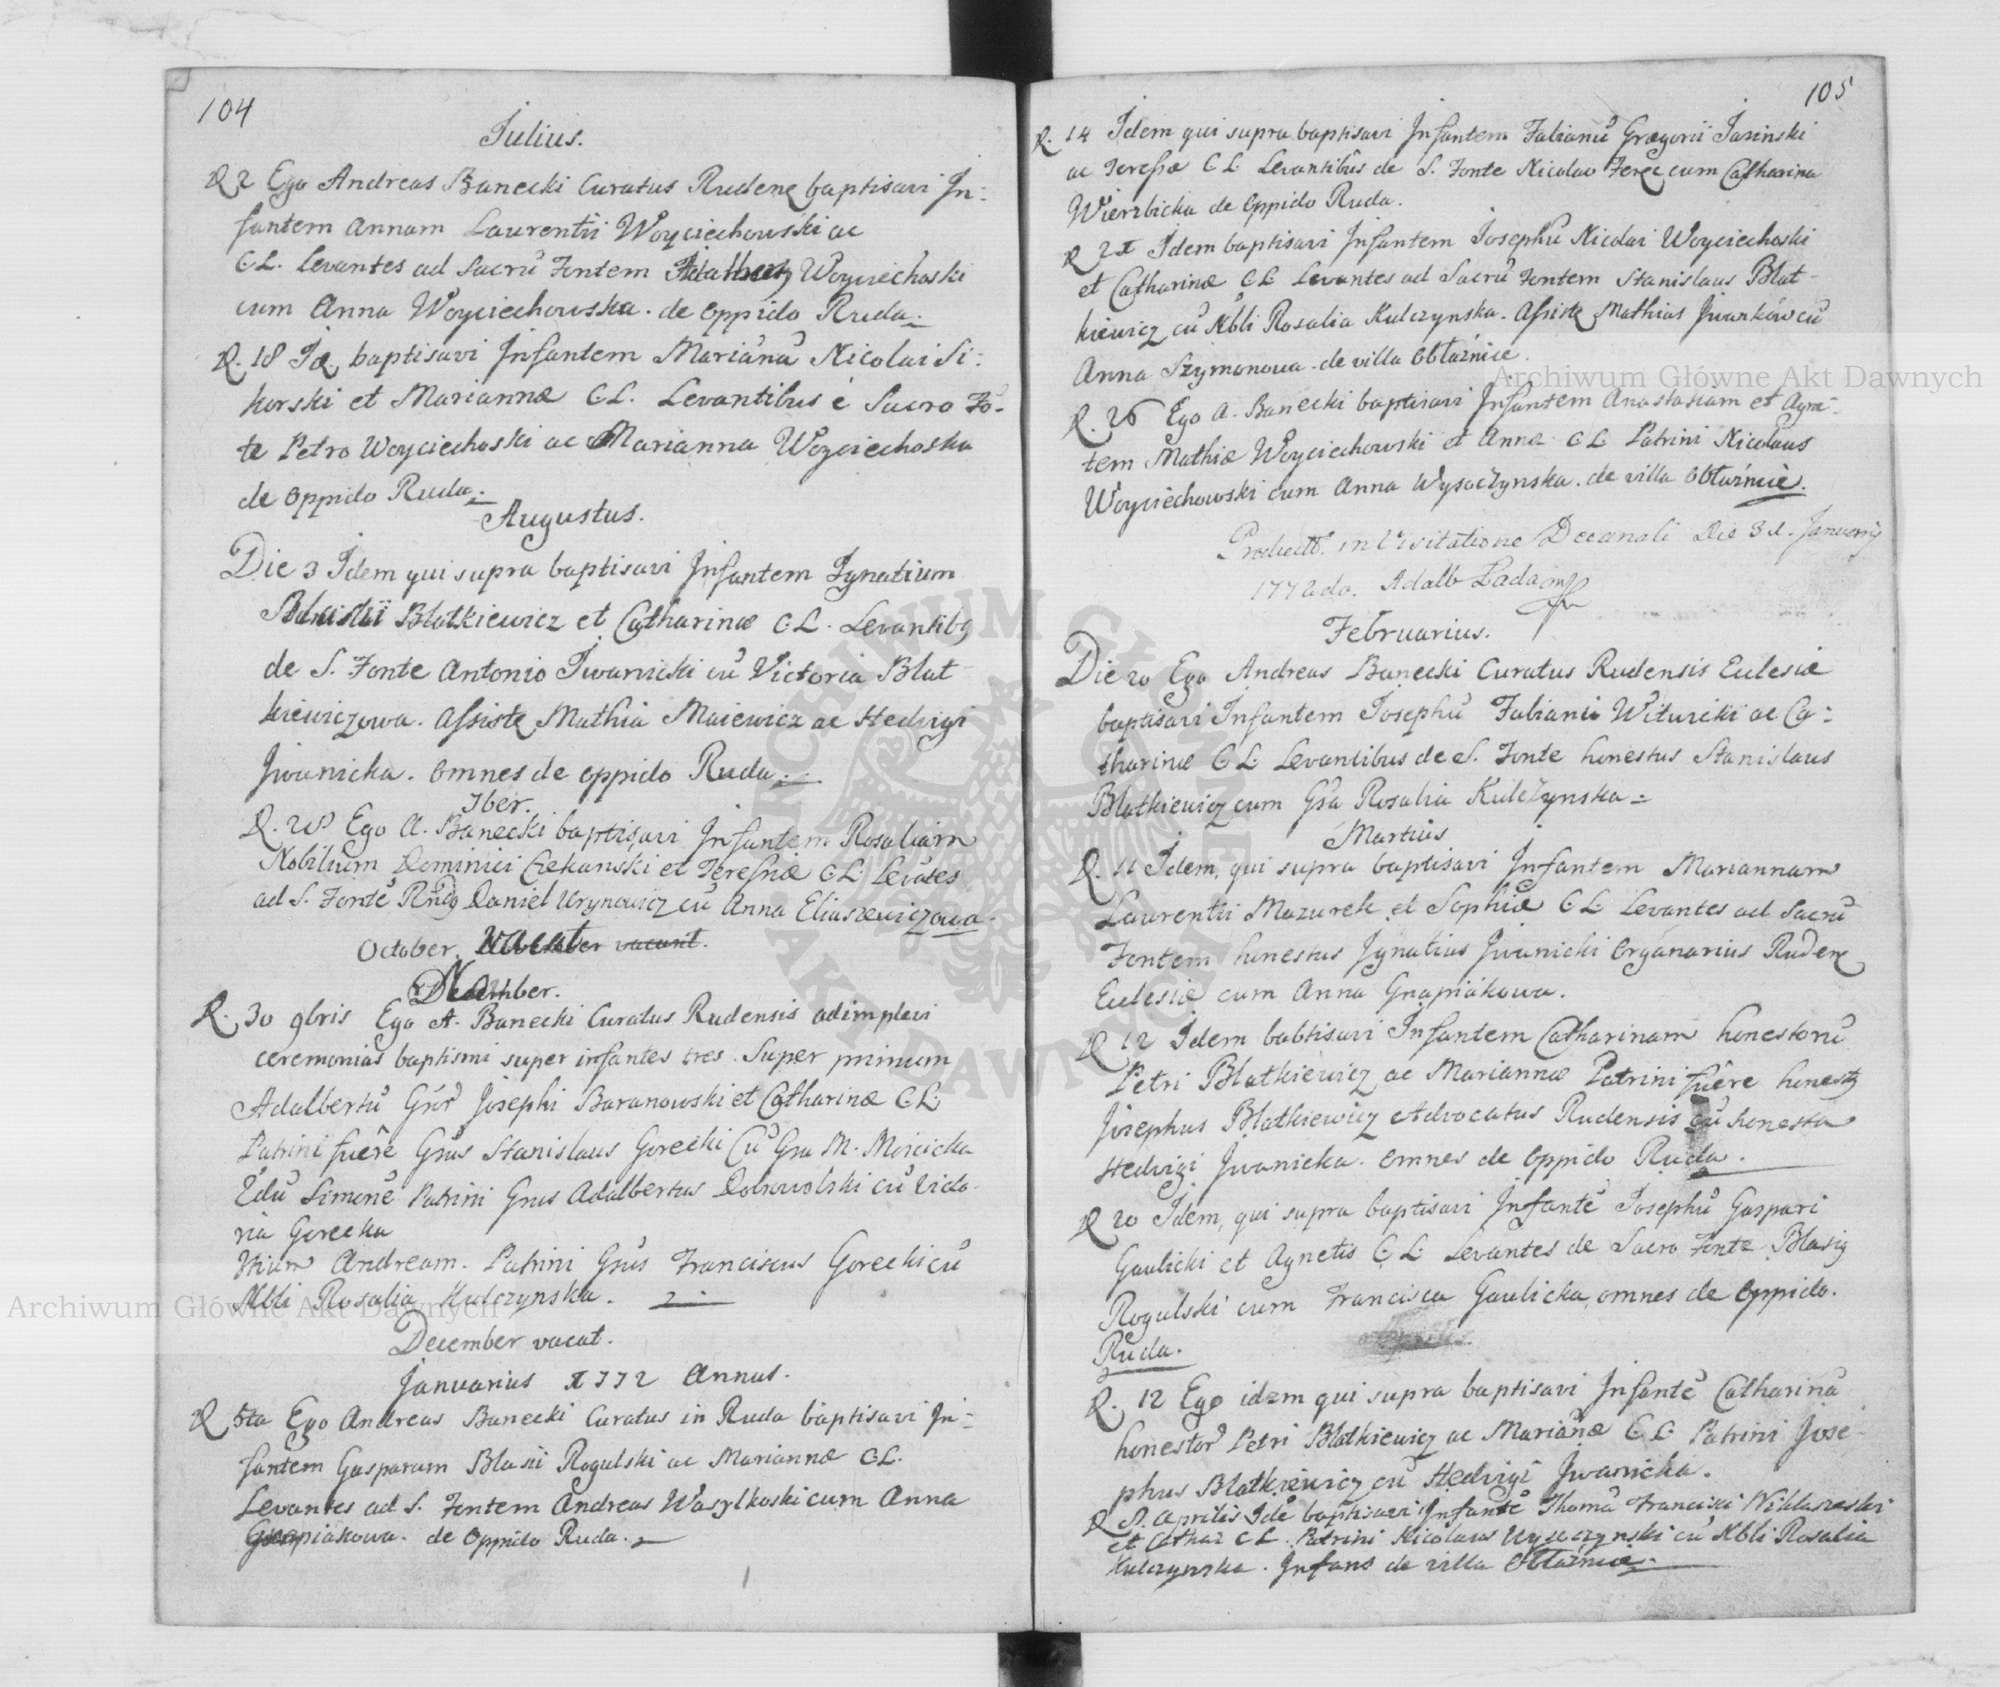 104
Julius.
D 2 Ego Andreas Banecki Curatus Rudenę baptisavi In:
fantem Annam Laurentii Woyciechowski ac
C.L. Levantes ad Sacrū Fontem Woyciechoski
cum Anna Woyciechowska. de Oppido Ruda.
D. 18 baptisavi Infantem Mariānā Nicolai Si:
korski et Mariannæ C.L. Levantibus è Sacro Fo-
te Petro Woyciechoski ac Marianna Woyciechoska
de Oppido Ruda.
Augustus.
Die 3 Idem qui supra baptisavi Infantem Ignatium
Blatkiewicz et Catharinæ C.L. Levantibg
de S. Fonte Antonio Iwanicki cū Victoria Blat
kiewiczowa. Assiste Mathia Maiewicz ac Hedvigi
Iwanicka. Omnes de Oppido Ruda.
7ber.
D. Ego A. Banecki baptisavi Infantem Rosaliam
Nobilium Dominici Czekanski et Teresiæ C.L. Levātes
ad S. Fontē Rndg Daniel Urynowicz cū Anna Eliaszewiczowa.
October. vacant.
D. 30 9bris Ego A. Banecki Curatus Rudensis adimplevi
ceremonias baptismi super infantes tres. Super primum
Adalbertū Gror Josephi Baranowski et Catharinæ C.L.
Patrini fuêre Grus Stanislaus Gorecki Cū Gra M. Moicicka
2du Simonē Patrini Grus Adalbertus Dobrowolski cū Victo-
ria Gorecka
3tium Andream. Patrini Grus Franciscus Gorecki cū
Nbli Rosalia Kulczynska.
December vacat.
Januarius 1772 Annus.
D 5ta Ego Andreas Banecki Curatus in Ruda baptisavi In:
fantem Gasparum Blasii Rogulski ac Mariannæ C.L.
Levantes ad S. Fontem Andreas Wasylkoski cum Anna
Gnapiakowa. de Oppido Ruda.
105
D. 14 Idem qui supra baptisavi Infantem Fabianū Gregorii Jasinski
ac Teressæ C L Levantibus de S. Fonte Nicolao Ferec cum Catharina
Wierzbicka de Oppido Ruda.
D 21 Idem baptisavi Infantem Josephū Nicolai Woyciechoski
et Catharinæ C L Levantes ad Sacrū Fontem Stanislaus Blat-
kiewicz cū Nbli Rosalia Kulczynska. Assistę Mathias Iwanków cū
Anna Szymonowa. de villa Obłaźnice.
D. 26 Ego A. Banecki baptisavi Infantem Anastasiam et Agne-
tem Mathiæ Woyciechowski et Annæ C L Patrini Nicolaus
Woyciechowski cum Anna Wysoczynska. de villa Obłaźnice.
Product. in Visitatione Decanali Die 31. Januarij
1772 do. Adalb Łada mp
Februarius.
Die 20 Ego Andreas Banecki Curatus Rudensis Ecclesiæ
baptisavi Infantem Josephū Fabiani Witwicki ac Ca:
tharinæ C L Levantibus de S. Fonte honestus Stanislaus
Blatkiewicz cum Gsa Rosalia Kulczynska
Martius
D. 11 Idem, qui supra baptisavi Infantem Mariannam
Laurentii Mazurek et Sophiæ C L Levantes ad Sacrū
Fontem honestus Ignatius Iwanicki Organarius Rudenę
Ecclesiæ cum Anna Gnapiakowa.
D 12 Idem babtisavi Infantem Catharinam honestorū
Petri Blatkiewicz ac Mariannæ Patrini fuêre honestg
Josephus Blatkiewicz Advocatus Rudensis cū honesta
Hedvigi Iwanicka. Omnes de Oppido Ruda.
D 20 Idem, qui supra baptisavi Infantē Josephū Gaspari
Gawlicki et Agnetis C L Levantes de Sacro Fonte Blasig
Rogulski cum Francisca Gawlicka, omnes de Oppido.
Ruda.
D. 12 Ego idem qui supra baptisavi Infantē Catharinā
honestor Petri Blatkiewicz ac Mariānæ C L Patrini Jose-
phus Blatkiewicz cū Hedvigi Iwanicka.
D 8. Aprilis Idē baptisavi Infantē Thomā Francisci Niklaszeski
et Cathar C L. Patrini Nicolaus Wysoczynski cū Nbli Rosalia
Kulczynska. Infans de villa Obłaźnice.
Archiwum Główne Akt Dawnych
Archiwum Główne Akt Dawnych
ARCHIWUM GŁÓWNE AKT DAWNYCH